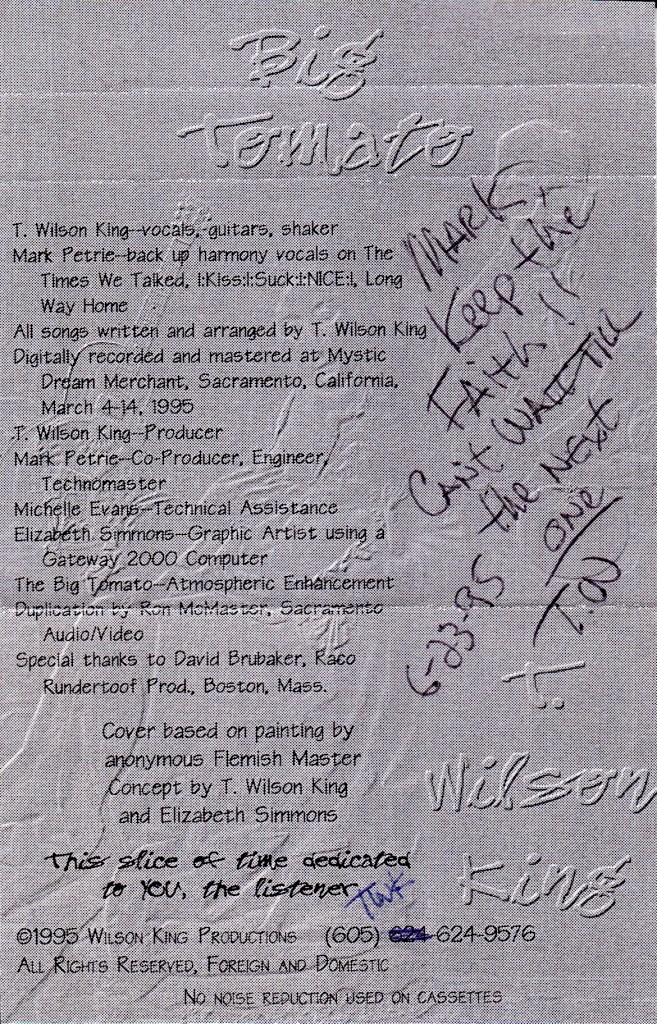 Big
Tomato
T. Wilson King--vocals, guitars, shaker
Mark Petrie--back up harmony vocals on The
Times We Talked, I:Kiss:I:Suck:I:NICE:I, Long
Way Home
All songs written and arranged by T. Wilson King
Digitally recorded and mastered at Mystic
Dream Merchant, Sacramento, California,
March 4-14, 1995
T. Wilson King--Producer
Mark Petrie--Co-Producer, Engineer,
Technomaster
Michelle Evans--Technical Assistance
Elizabeth Simmons--Graphic Artist using a
Gateway 2000 Computer
The Big Tomato--Atmospheric Enhancement
Duplication by Ron McMaster, Sacramento
Audio/Video
Special thanks to David Brubaker, Raco
Rundertoof Prod., Boston, Mass.
MARK
Keep the
FAith!!
CAn't WAit Till
the NExt
ONE
6-23-95
T.
Wilson
King
Cover based on painting by
anonymous Flemish Master
Concept by T. Wilson King
and Elizabeth Simmons
This slice of time dedicated
to YOU, the listener
TWK
©1995 Wilson King Productions (605) 624-9576
All Rights Reserved, Foreign and Domestic
No noise reduction used on cassettes